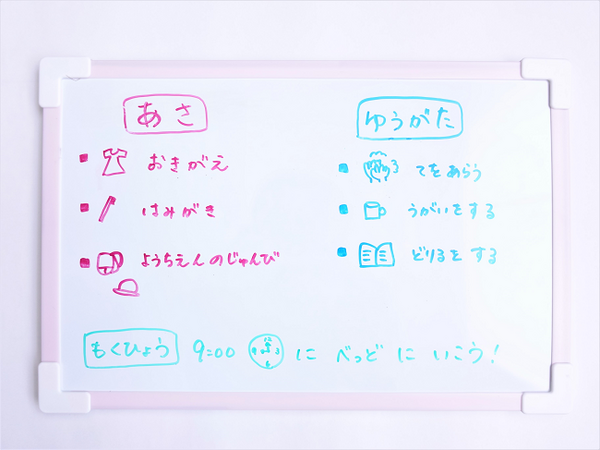 あさ
おきがえ
はみがき
ようちえんのじゅんび
ゆうがた
てをあらう
うがいをする
どりるをする
もくひょう 9:00 12 3 6 9 に べっど に いこう!